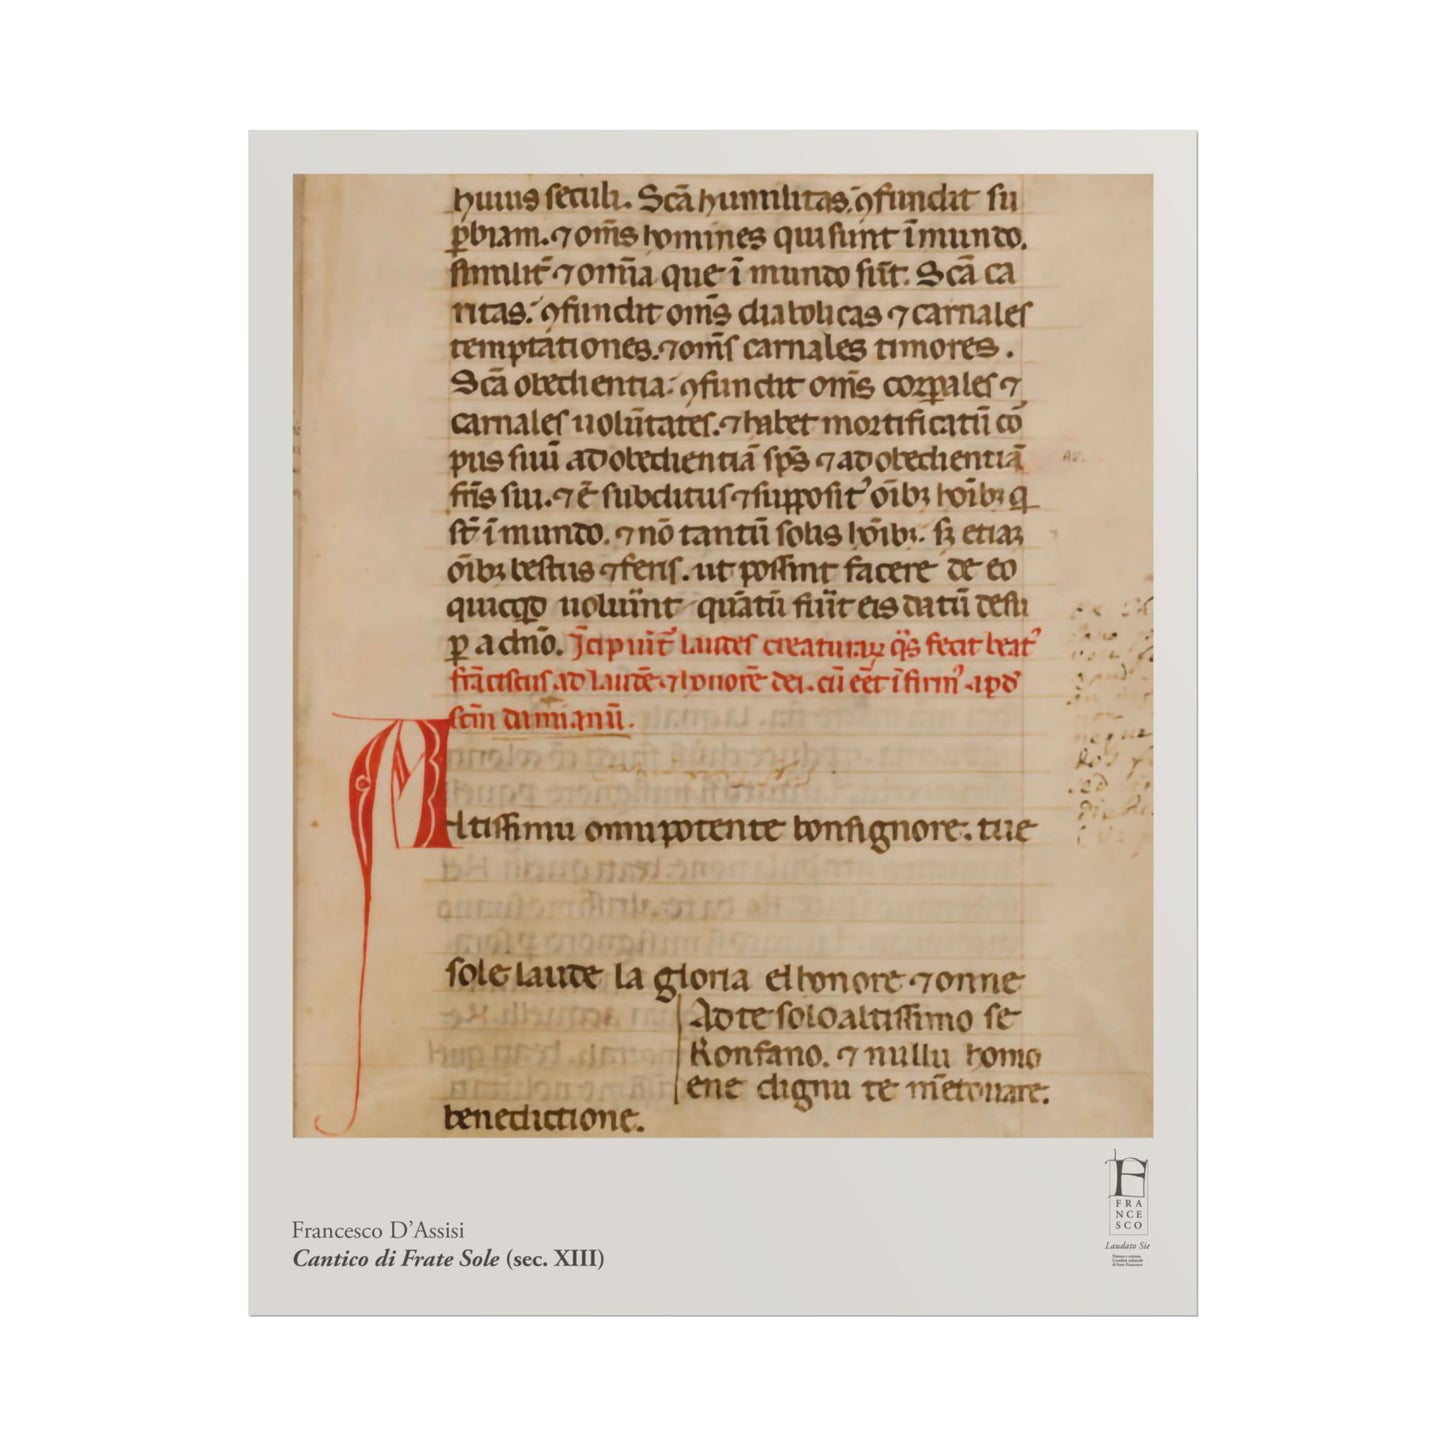 huius seculi. Scā humilitas. ꝯfundit su
ꝑbiam. ⁊ om̄s homines qui sunt ī mundo.
similit̄ ⁊ om̄ia que ī mundo sūt. Scā ca
ritas. ꝯfundit om̄s diabolicas ⁊ carnales
temptationes. ⁊ om̄s carnales timores.
Scā obedientia. ꝯfundit om̄s corꝑales ⁊
carnales uolūtates. ⁊ habet mortificatū cō
pus suū ad obedientiā sp̄s ⁊ ad obedientiā
fr̄is sui. ⁊ ē subditus ⁊ supposit᾽ oīb₃ hoīb₃ q
st̄ ī mundo. ⁊ nō tantū solis hoīb₃. s₃ etiaꝫ
oīb₃ bestiis ⁊ feris. ut possint facere de eo
quicqd uolu͛int quātū fu͛it eis datū desu
ꝑ a dn̄o. Īcipiūt laudes creaturaꝝ q̄s fecit beat᾽
frāciscus ad laudē ⁊ honorē dei. cū eēt ī firm᾽ apd
scm̄ damianū.
Altissimu omnipotente bonsignore. tue
sole laude la gloria elhonore ⁊ onne
Ad te solo altissimo se
Konfano. ⁊ nullu homo
ene dignu te mētouare.
benedictione.
Francesco D’Assisi
Cantico di Frate Sole (sec. XIII)
F
FRA
NCE
SCO
Laudato Sie